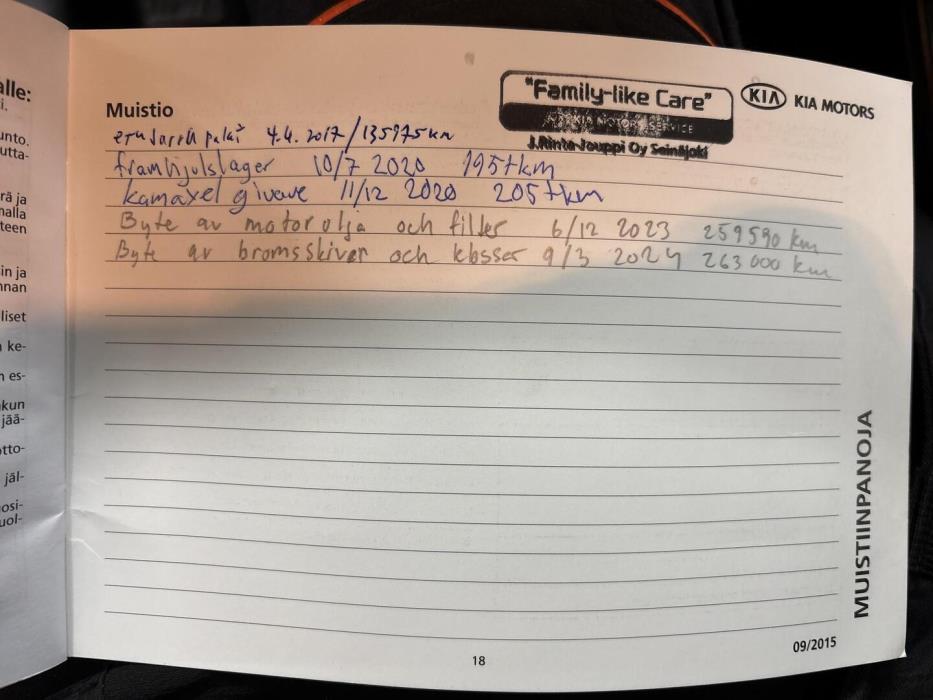 alle:
i.
unto.
utta-
rä ja
malla
teen
sin ja
nnan
liset
n ke-
n es-
kun
jää-
otto-
jäl-
osi-
uol-
"Family-like Care"
KIA MOTORS SERVICE
J.Rinta-Jouppi Oy Seinäjoki
KIA KIA MOTORS
Muistio
etujarru palat 4.4. 2017/135975km
framhjulslager 10/7 2020 195tkm
kamaxel givare 11/12 2020 205tkm
Byte av motorolja och filter 6/12 2023 259590 km
Byte av bromsskivor och klossar 9/3 2024 263 000 km
MUISTIINPANOJA
18
09/2015